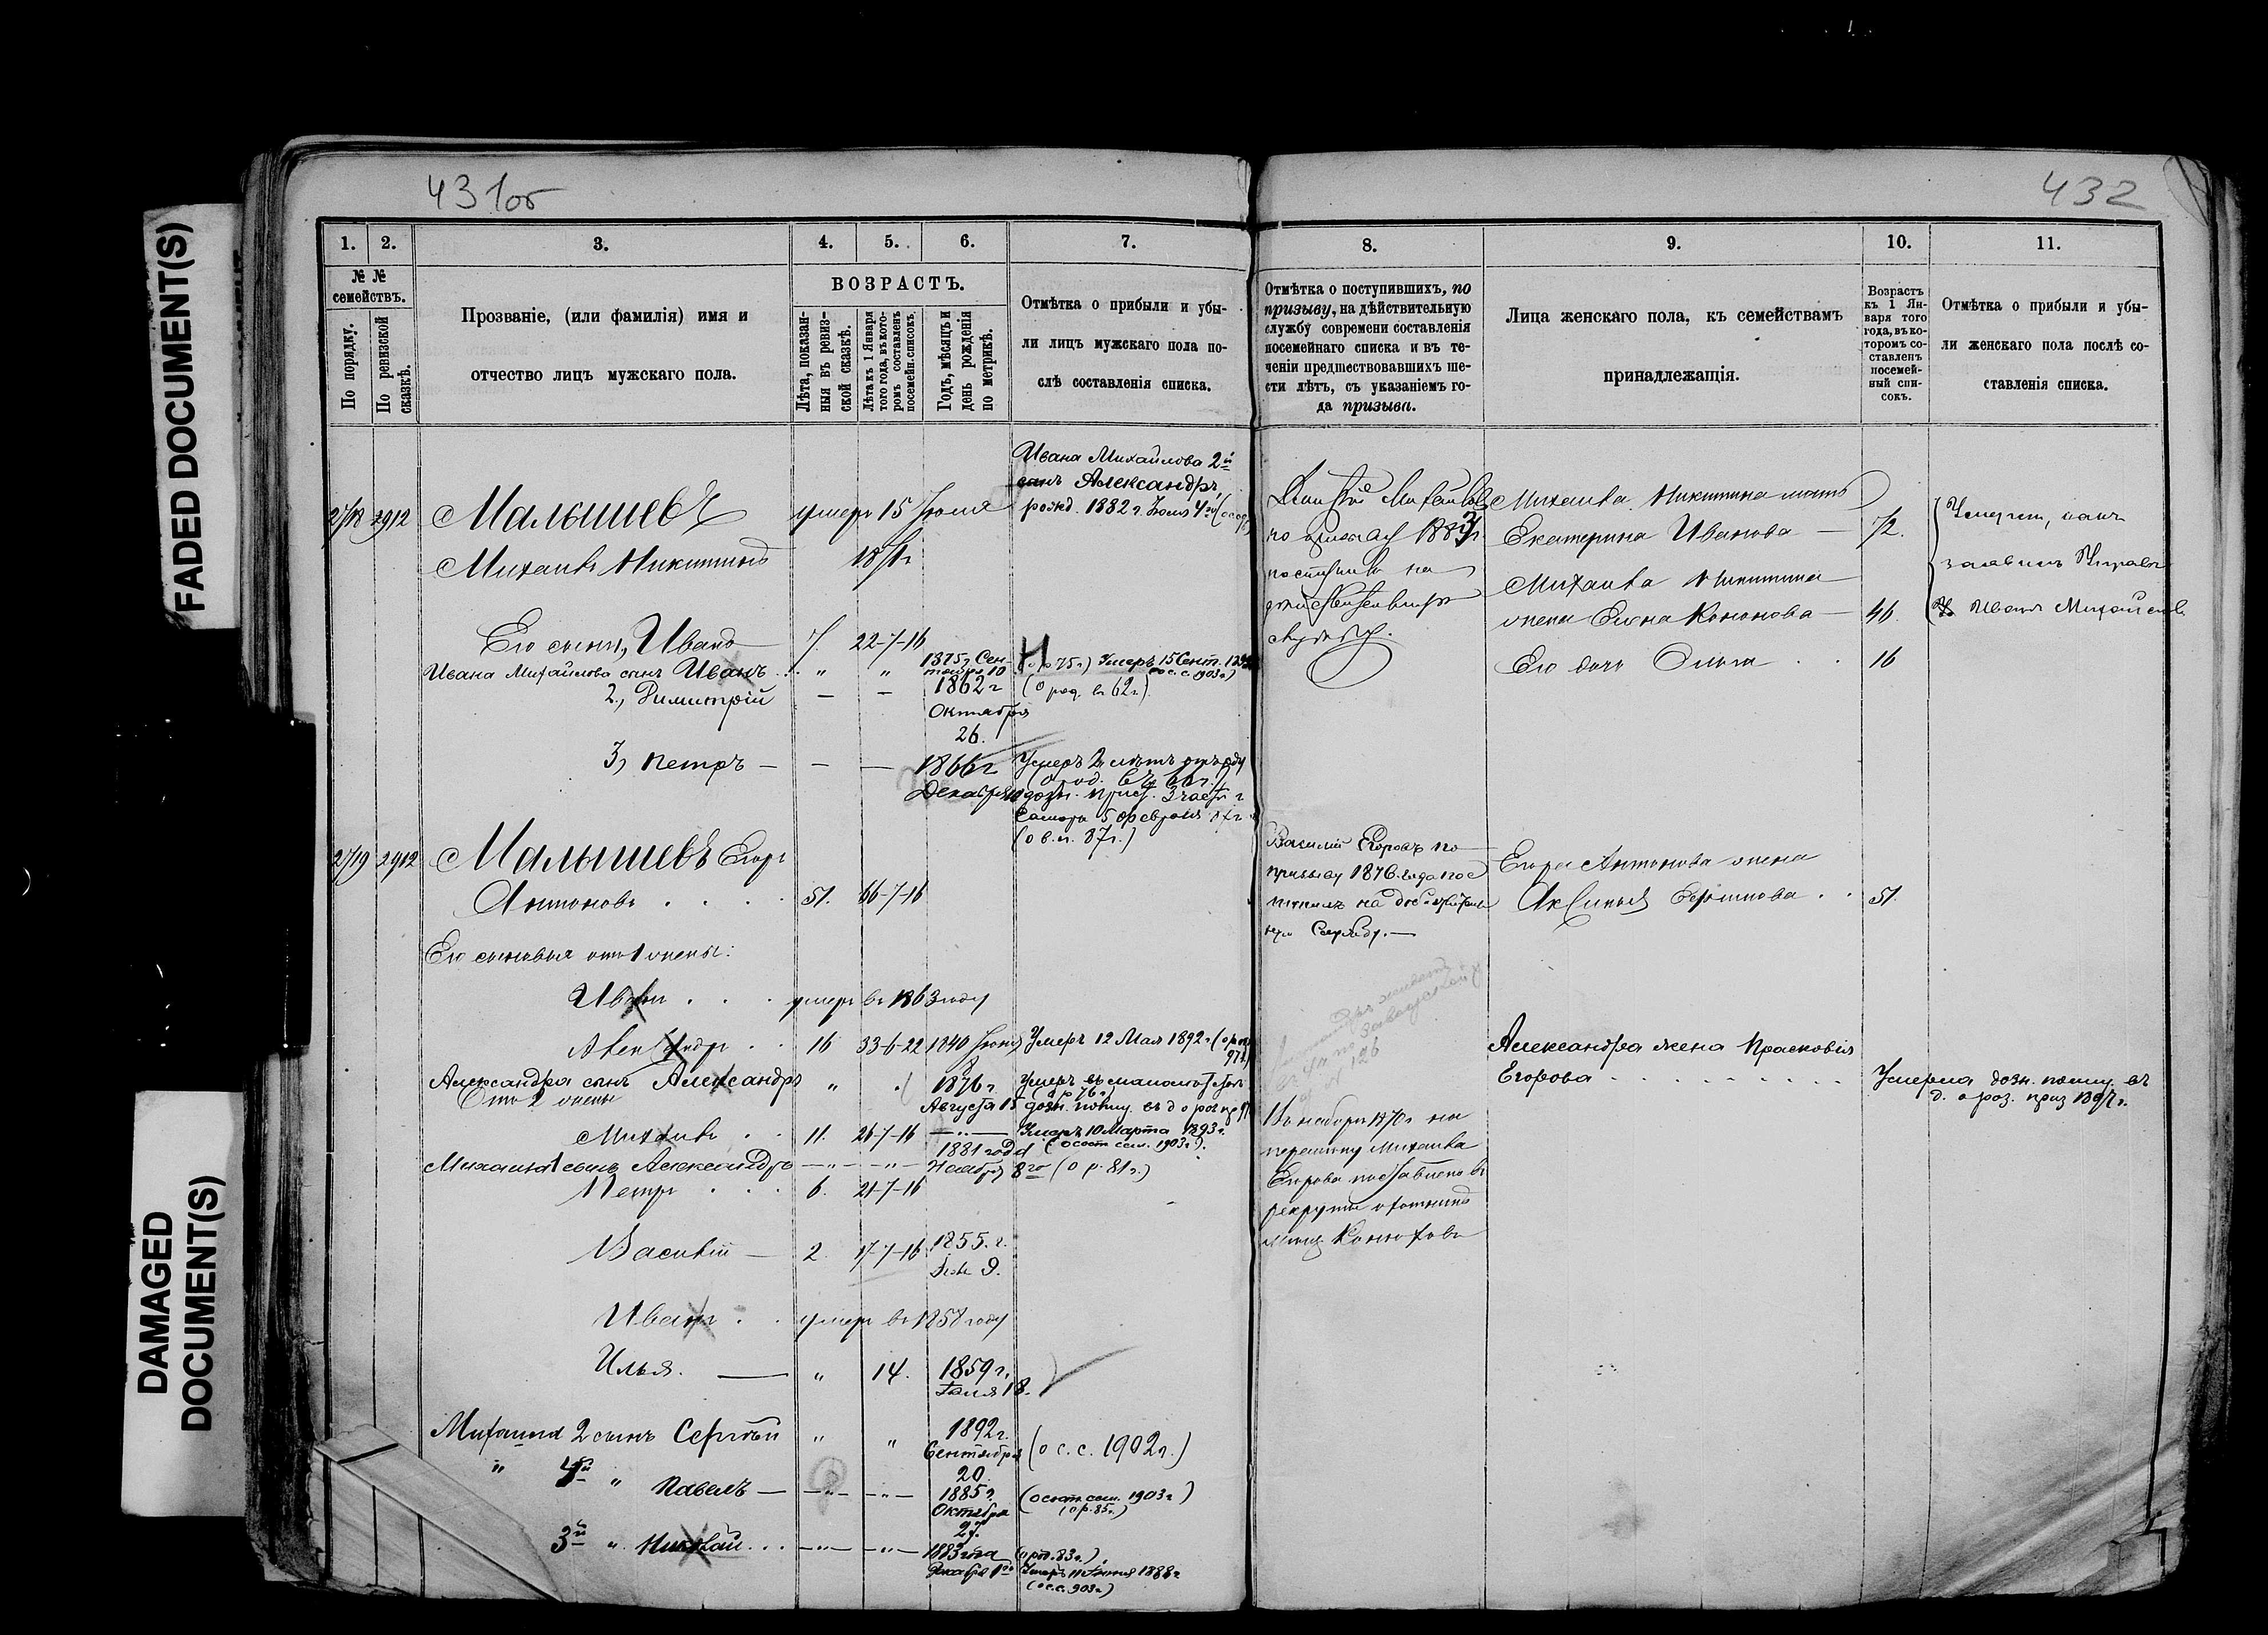 FADED DOCUMENT(S)
DAMAGED
DOCUMENT(S)
431об
432
1.
2.
3.
4.
5.
6.
7.
8.
9.
10.
11.
№ №
семействъ.
По порядку.
По ревизской
сказкѣ.
Прозваніе, (или фамилія) имя и
отчество лицъ мужскаго пола.
ВОЗРАСТЪ.
Лѣта, показан-
ныя въ ревиз-
ской сказкѣ.
Лѣта къ 1 Января
того года, въ кото-
ромъ составленъ
посемейн. списокъ.
Годъ, мѣсяцъ и
день рожденія
по метрикѣ.
Отмѣтка о прибыли и убы-
ли лицъ мужскаго пола по-
слѣ составленія списка.
Отмѣтка о поступившихъ, по
призыву, на дѣйствительную
службу современи составленія
посемейнаго списка и въ те-
ченіи предшествовавшихъ ше-
сти лѣтъ, съ указаніемъ го-
да призыва.
Лица женскаго пола, къ семействамъ
принадлежащія.
Возрастъ
къ 1 Ян-
варя того
года, въ ко-
торомъ со-
ставленъ
посемей-
ный спи-
сокъ.
Отмѣтка о прибыли и убы-
ли женскаго пола послѣ со-
ставленія списка.
Ивана Михайлова 2й
сынъ Александръ
рожд. 1882 г. Іюля 4го
2718 2912 Малышевъ умеръ 15 Іюля
Михаилъ Никитинъ
Его сынъ, Иванъ 7. 22-7-16
Ивана Михайлова сынъ Иванъ „ „ 1875 г. Сен-
тября 10
(о р. 75 г.) Умеръ 15 Сент.
(о с. с. 1903 г.)
2, Димитрій — — 1862 г
Октября
26.
(о род. въ 62 г.)
3, Петръ — — — 1866 г
Декабря
Умеръ 2 лѣтъ
о род. въ 66 г.
дозн. прист. 3 части г.
Самары 5 февраля 87 г.
(о в. п. 87 г.)
Дмитрій Михайловъ
по призыву 1883 г.
поступилъ на
дѣйствительную
службу.
Михаила Никитина мать
Екатерина Ивановна — 72.
Михаила Никитина
жена Елена Кононова — 46.
Его дочь Ольга . . 16
Умерла, какъ
заявилъ
Иванъ Михайловъ
2719 2912 Малышевъ Егоръ
Антоновъ . . . . 51. 66-7-16
Его сыновья отъ 1 жены:
Иванъ . . . умеръ въ 1863 году
Александръ . . 16 33-6-22 1840 Іюня
Умеръ 12 Мая 1892 г.
Александра сынъ Александръ „ 1876 г.
Августа 15
Умеръ въ малолѣт.
(о р. 76 г.)
Отъ 2 жены
Михаилъ . . 11. 26-7-16
Умеръ 10 Марта 1893 г.
(о сост. сем. 1903 г.)
Михаила 1 сынъ Александръ —„— —„— 1881 года
Ноября 8го (о р. 81 г.)
Петръ . . . 6. 21-7-16
Василій — 2. 17-7-16 1855. г.
9.
Иванъ . . умеръ въ 1858 году
Илья. — „ 14. 1859 г.
18.
Михаила 2 сынъ Сергѣй „ „ 1892 г.
Сентября
20.
(о с. с. 1902 г.)
„ „ Павелъ — —„— —„— 1885 г.
Октября
27.
(о сост. сем. 1903 г.)
(о р. 85 г.)
3й „ Николай . . . —„— —„— 1883 года
Декабря
(о рож. 83 г.)
Умеръ 11 1888 г
(о с. с. 903 г.)
Василій Егоровъ по
призыву 1876 года пос
тупилъ на дѣйствитель
ную Службу. —
Егора Антонова жена
Аксинья . . 51.
126
Въ наборъ 1870 г. на
перемѣну Михаила
Егорова поставленъ въ
рекруты охотникъ
Александра жена Прасковія
Егорова . . . . . . . . .
Умерла дозн. полиц. въ
д. о роз. приз 1897 г.